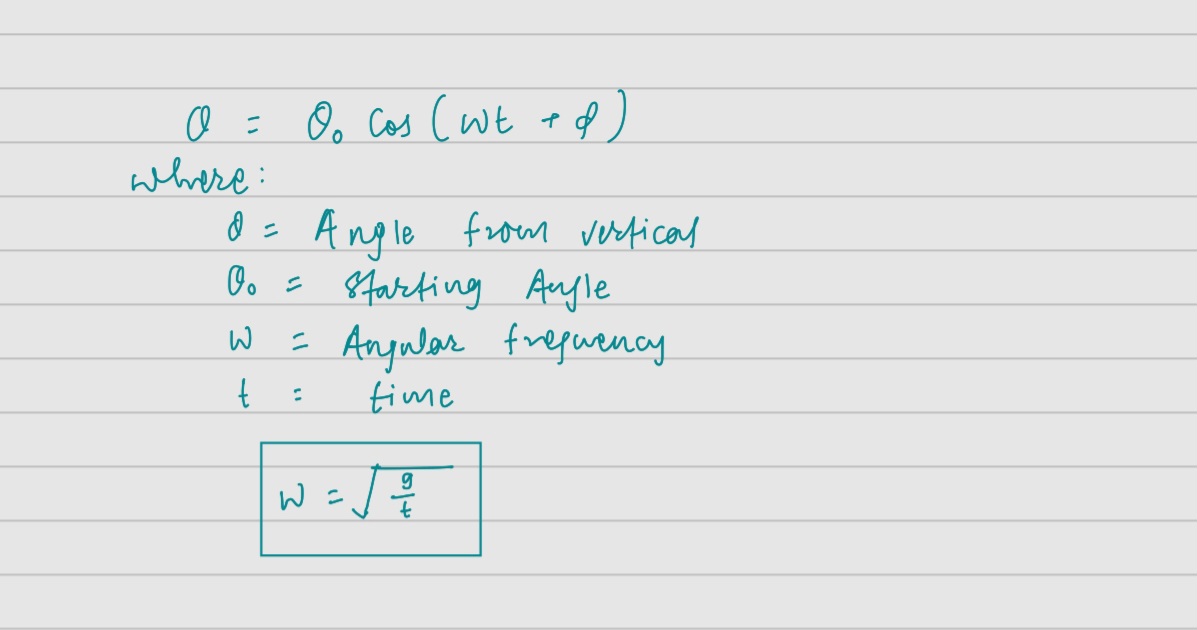 θ = θ₀ Cos (wt + φ)
where:
θ = Angle from vertical
θ₀ = Starting Angle
w = Angular frequency
t = time
w = √(g/t)